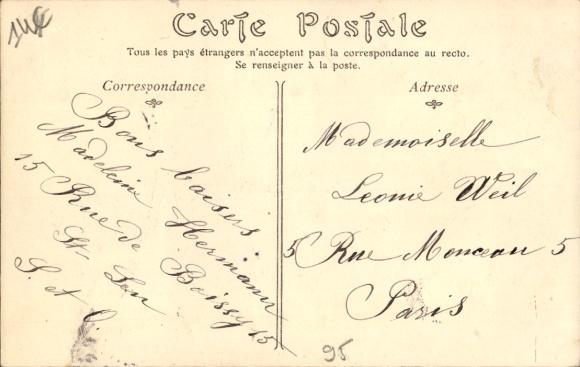 14€
Carte Postale
Tous les pays étrangers n'acceptent pas la correspondance au recto.
Se renseigner à la poste.
Correspondance
Bons baisers
Madeleine Hermann
15 Rue de Boissy 15
St Leu
S. et O.
Adresse
Mademoiselle
Leonie Weil
5 Rue Monceau 5
Paris
95